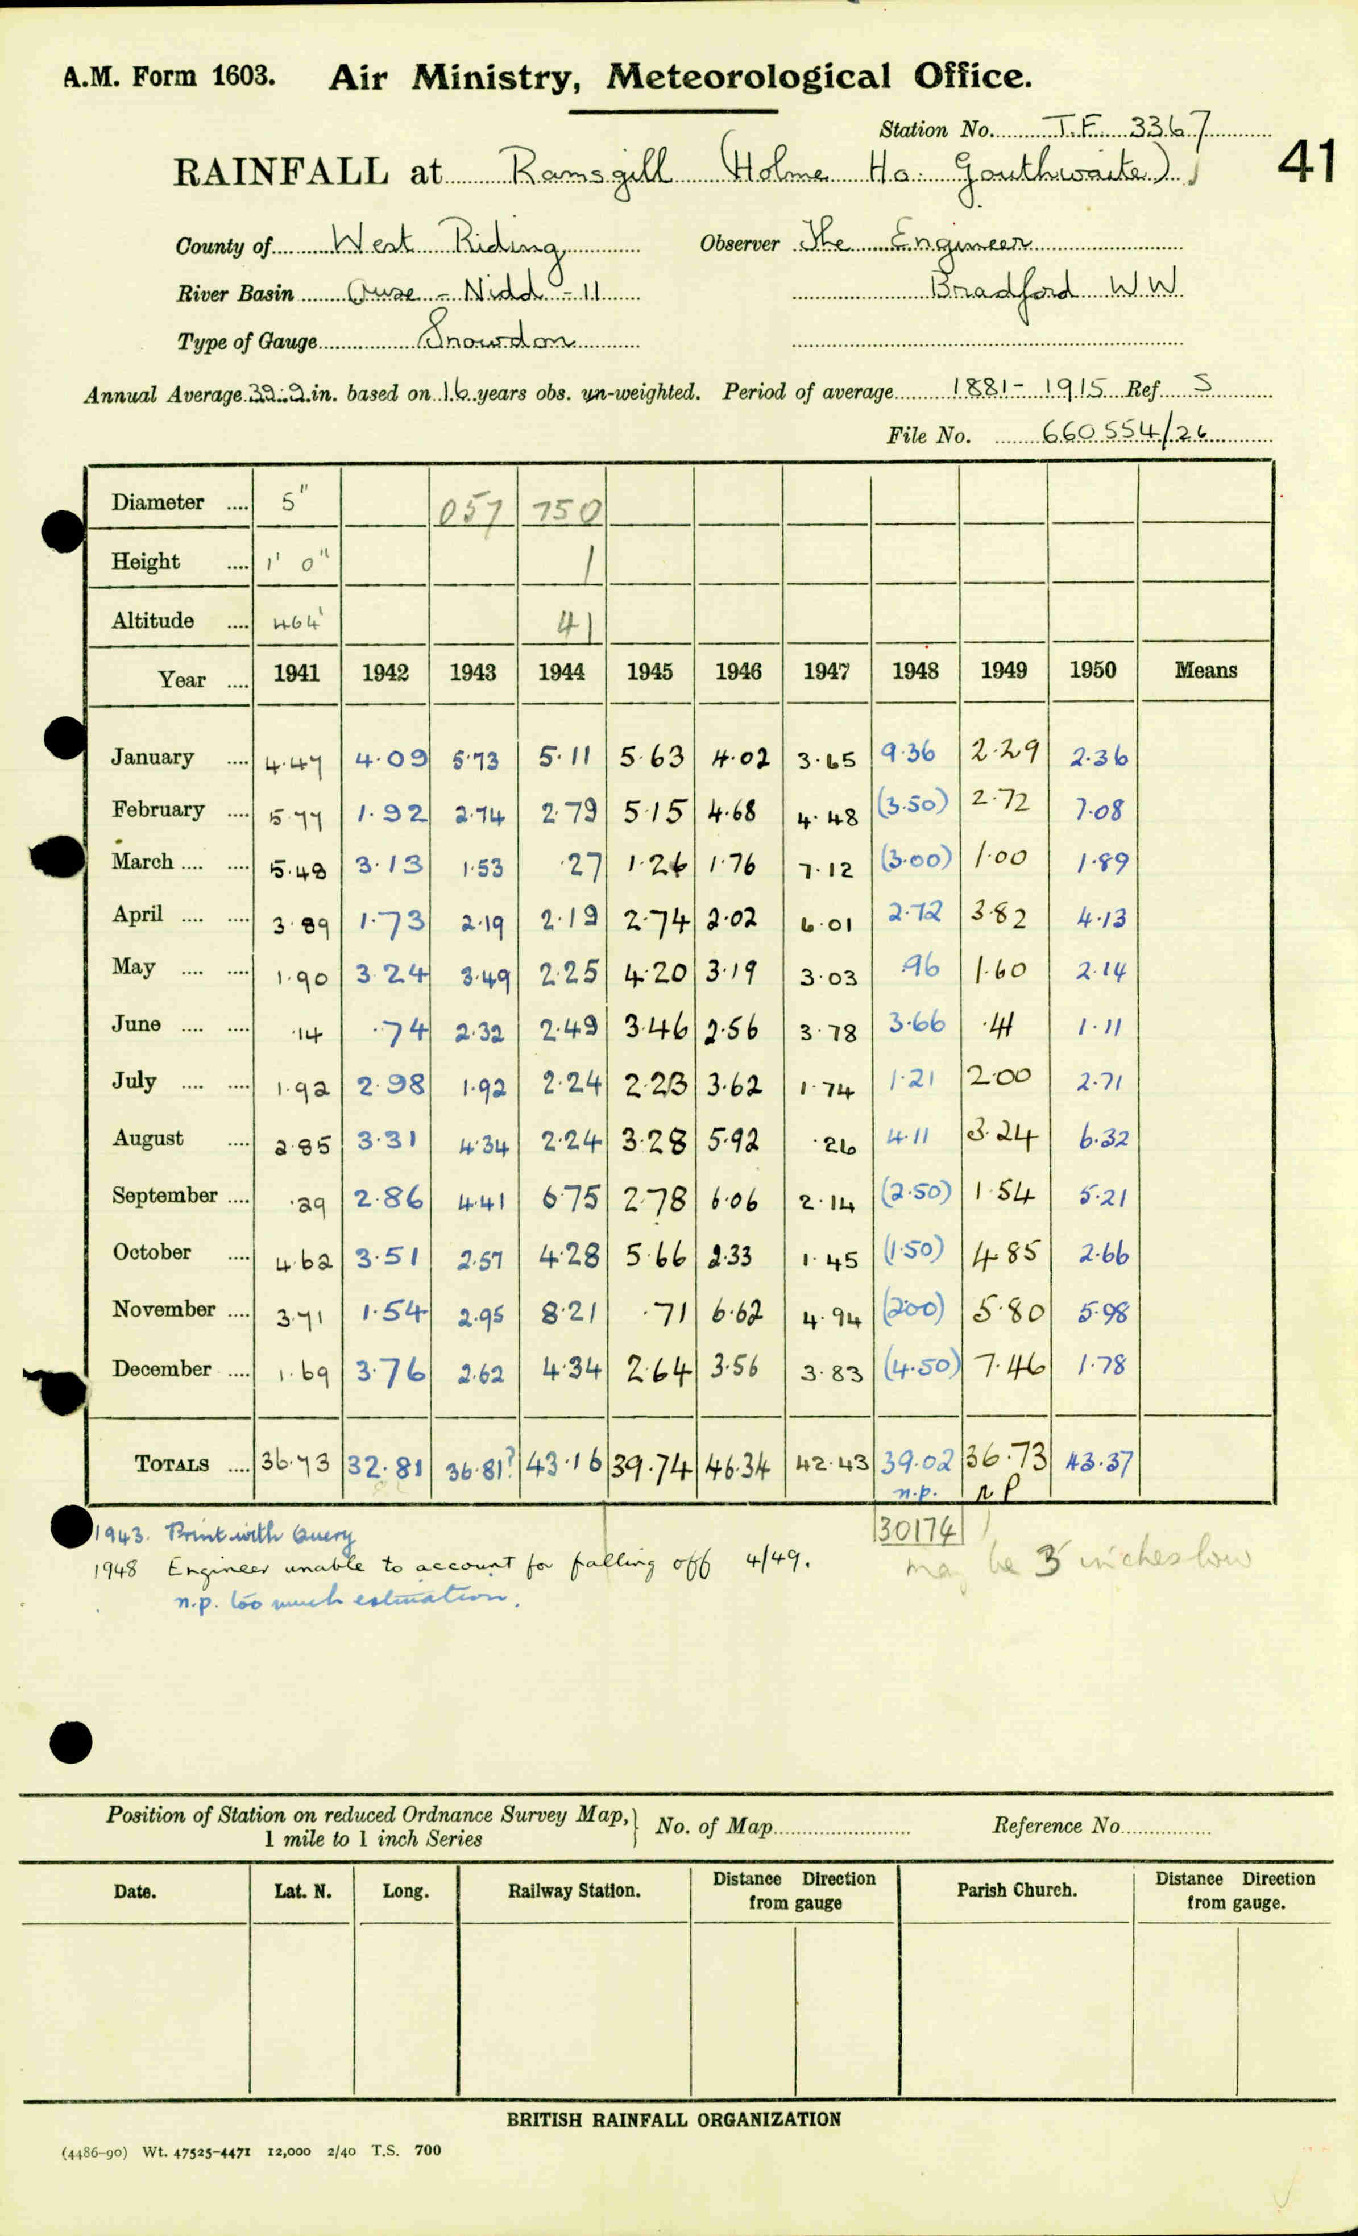 A.M. Form 1603. Air Ministry, Meteorological Office.
Station No. T.F. 3367
41
RAINFALL at Ramsgill (Holme Ho. Gouthwaite)
County of West Riding Observer The Engineer
River Basin Ouse - Nidd - 11 Bradford W W
Type of Gauge Snowdon
Annual Average 39.9 in. based on 16 years obs. un-weighted. Period of average 1881 - 1915 Ref S
File No. 660554/26
Diameter .... 5" 057 750
Height .... 1' 0" 1
Altitude .... 464' 41
Year .... 1941 1942 1943 1944 1945 1946 1947 1948 1949 1950 Means
January .... 4.47 4.09 5.73 5.11 5.63 4.02 3.65 9.36 2.29 2.36
February .... 5.77 1.92 2.74 2.79 5.15 4.68 4.48 (3.50) 2.72 7.08
March .... .... 5.48 3.13 1.53 .27 1.26 1.76 7.12 (3.00) 1.00 1.89
April .... .... 3.89 1.73 2.19 2.19 2.74 2.02 6.01 2.72 3.82 4.13
May .... .... 1.90 3.24 3.49 2.25 4.20 3.19 3.03 .96 1.60 2.14
June .... .... .14 .74 2.32 2.49 3.46 2.56 3.78 3.66 .41 1.11
July .... .... 1.92 2.98 1.92 2.24 2.23 3.62 1.74 1.21 2.00 2.71
August .... 2.85 3.31 4.34 2.24 3.28 5.92 .26 4.11 3.24 6.32
September .... .29 2.86 4.41 6.75 2.78 6.06 2.14 (2.50) 1.54 5.21
October .... 4.62 3.51 2.57 4.28 5.66 2.33 1.45 (1.50) 4.85 2.66
November .... 3.71 1.54 2.95 8.21 .71 6.62 4.94 (2.00) 5.80 5.98
December .... 1.69 3.76 2.62 4.34 2.64 3.56 3.83 (4.50) 7.46 1.78
TOTALS .... 36.73 32.81 36.81? 43.16 39.74 46.34 42.43 39.02 36.73 43.37
n.p. n P
1943. Print with Query 30174
1948 Engineer unable to account for falling off 4/49. may be 3 inches low
n.p. too much estimation.
Position of Station on reduced Ordnance Survey Map, 1 mile to 1 inch Series } No. of Map Reference No
Date. Lat. N. Long. Railway Station. Distance Direction from gauge Parish Church. Distance Direction from gauge.
BRITISH RAINFALL ORGANIZATION
(4486-90) Wt. 47525-4471 12,000 2/40 T.S. 700